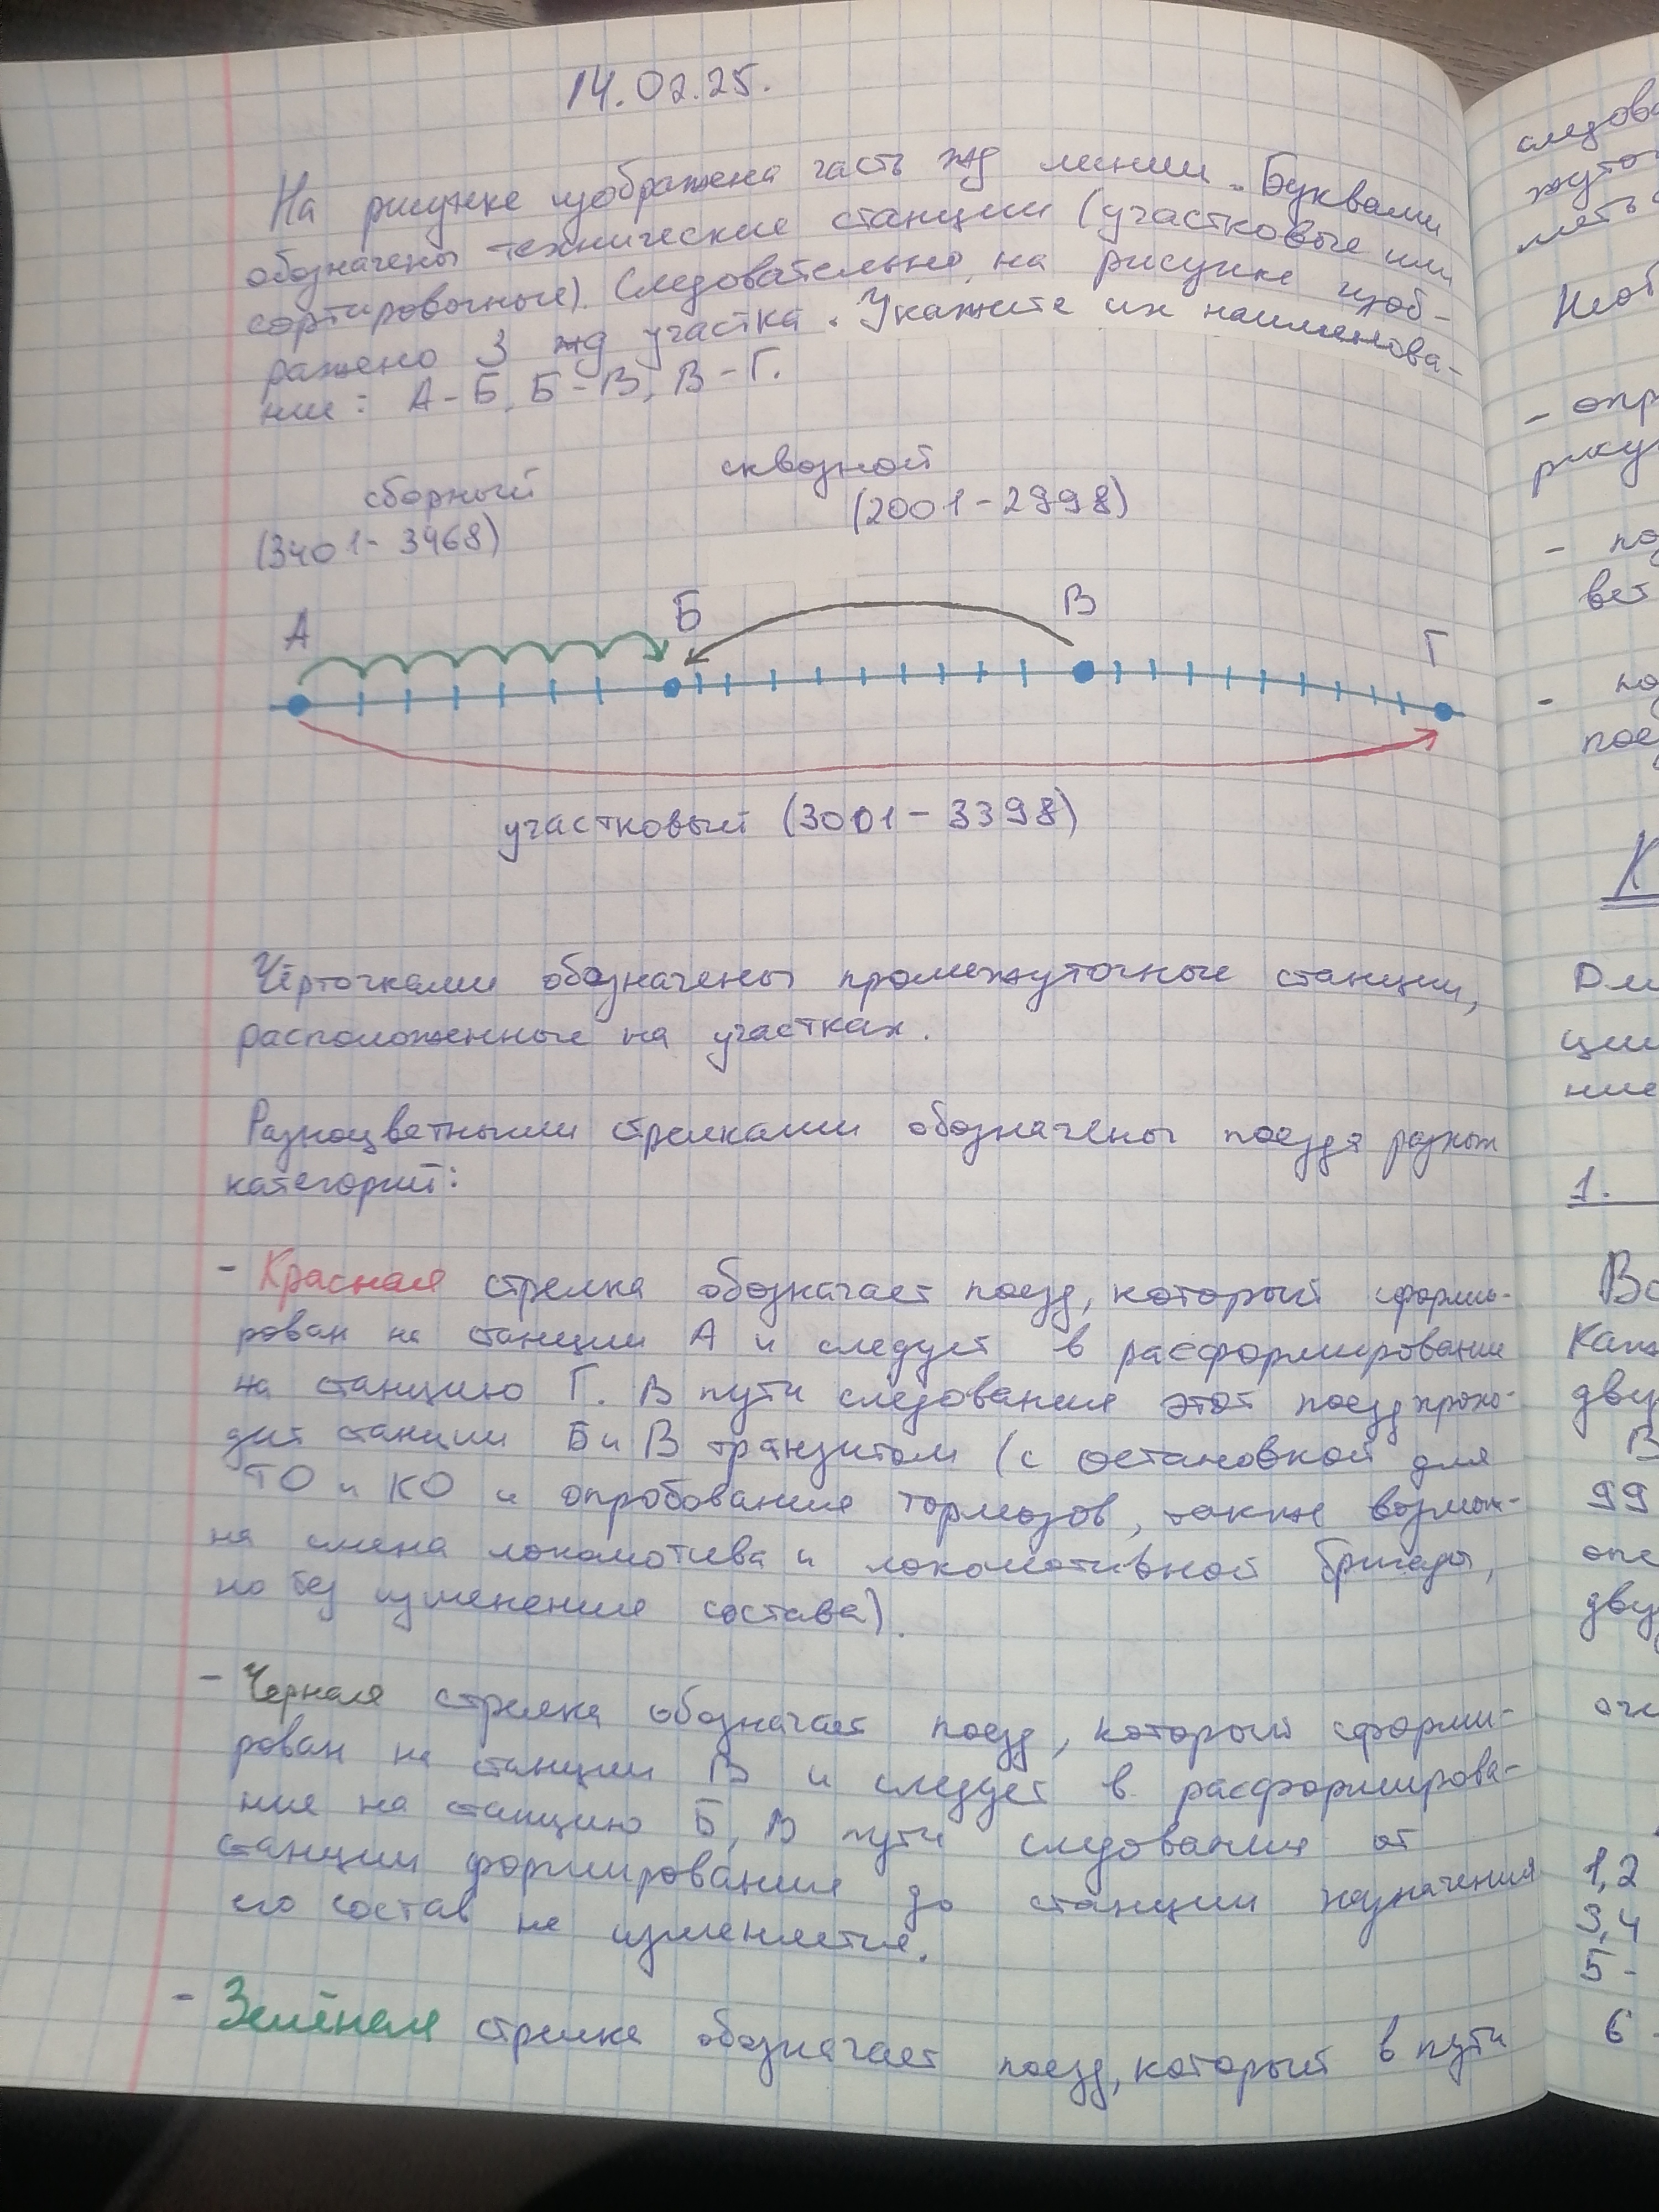 14.02.25.
На рисунке изображена часть жд линии. Буквами
обозначены технические станции (участковые или
сортировочные). Следовательно, на рисунке изоб-
ражено 3 жд участка. Укажите их наименова-
ние: А-Б, Б-В, В-Г.
сборный
(3401-3468)
сквозной
(2001-2998)
А
Б
В
Г
участковый (3001-3398)
Чёрточками обозначены промежуточные станции,
расположенные на участках.
Разноцветными стрелками обозначены поезда разных
категорий:
- Красная стрелка обозначает поезд, который сформи-
рован на станции А и следует в расформирование
на станцию Г. В пути следования этот поезд прохо-
дит станции Б и В транзитом (с остановкой для
ТО и КО и опробования тормозов, также возмож-
на смена локомотива и локомотивной бригады,
но без изменения состава).
- Черная стрелка обозначает поезд, который сформи-
рован на станции В и следует в расформирова-
ние на станцию Б, В пути следования от
станции формирования до станции назначения
его состав не изменяется.
- Зелёная стрелка обозначает поезд, который в пути
следов
жуто
Необ
- опр
рису
- по
вет
- по
пое
К
Дл
ции
ние
1.
Вс
Каж
дву
В
99
опе
дву
оче
1,2
3,4
5-
6-